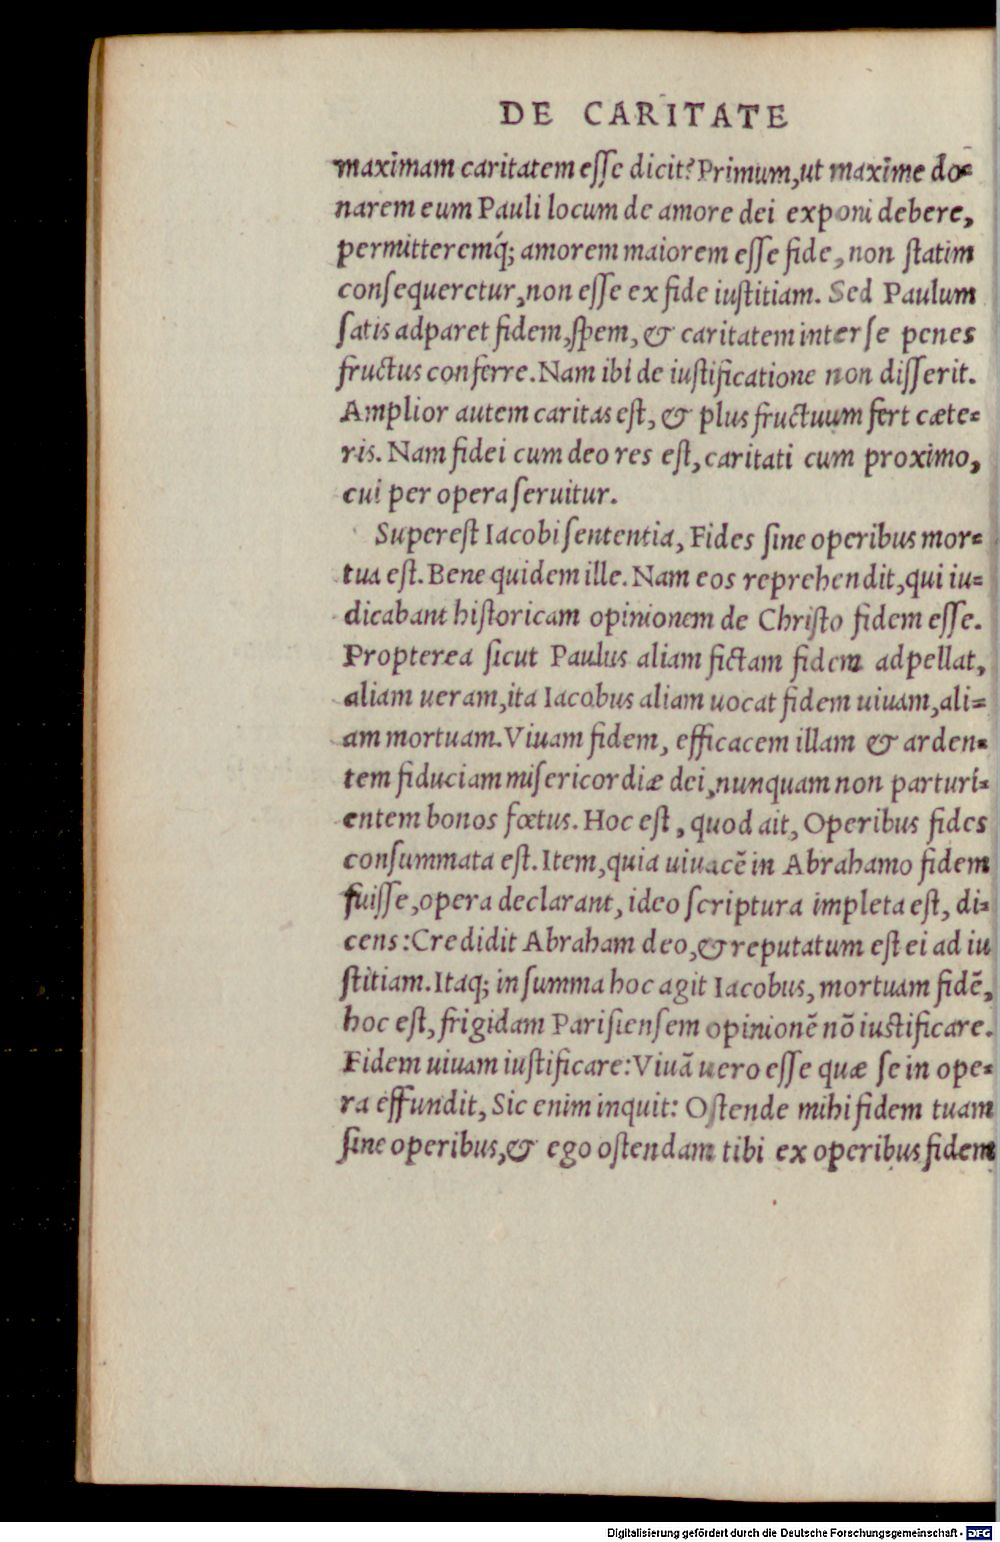 DE CARITATE
maximam caritatem eſſe dicit? Primum, ut maxime do⸗
narem eum Pauli locum de amore dei exponi debere,
permitteremq́; amorem maiorem eſſe fide, non ſtatim
conſequeretur, non eſſe ex fide iuſtitiam. Sed Paulum
ſatis adparet fidem, ſpem, & caritatem inter ſe penes
fructus conferre. Nam ibi de iuſtificatione non diſſerit.
Amplior autem caritas eſt, & plus fructuum fert cæte⸗
ris. Nam fidei cum deo res eſt, caritati cum proximo,
cui per opera ſeruitur.
Supereſt Iacobi ſententia, Fides ſine operibus mor⸗
tua eſt. Bene quidem ille. Nam eos reprehendit, qui iu⸗
dicabant hiſtoricam opinionem de Chriſto fidem eſſe.
Propterea ſicut Paulus aliam fictam fidem adpellat,
aliam ueram, ita Iacobus aliam uocat fidem uiuam, ali⸗
am mortuam. Viuam fidem, efficacem illam & arden⸗
tem fiduciam miſericordiæ dei, nunquam non parturi⸗
entem bonos fœtus. Hoc eſt, quod ait, Operibus fides
conſummata eſt. Item, quia uiuacē in Abrahamo fidem
fuiſſe, opera declarant, ideo ſcriptura impleta eſt, di⸗
cens: Credidit Abraham deo, & reputatum eſt ei ad iu
ſtitiam. Itaq; in ſumma hoc agit Iacobus, mortuam fidē,
hoc eſt, frigidam Pariſienſem opinionē nō iuſtificare.
Fidem uiuam iuſtificare: Viuā uero eſſe quæ ſe in ope⸗
ra effundit, Sic enim inquit: Oſtende mihi fidem tuam
ſine operibus, & ego oſtendam tibi ex operibus fidem
Digitalisierung gefördert durch die Deutsche Forschungsgemeinschaft - DFG